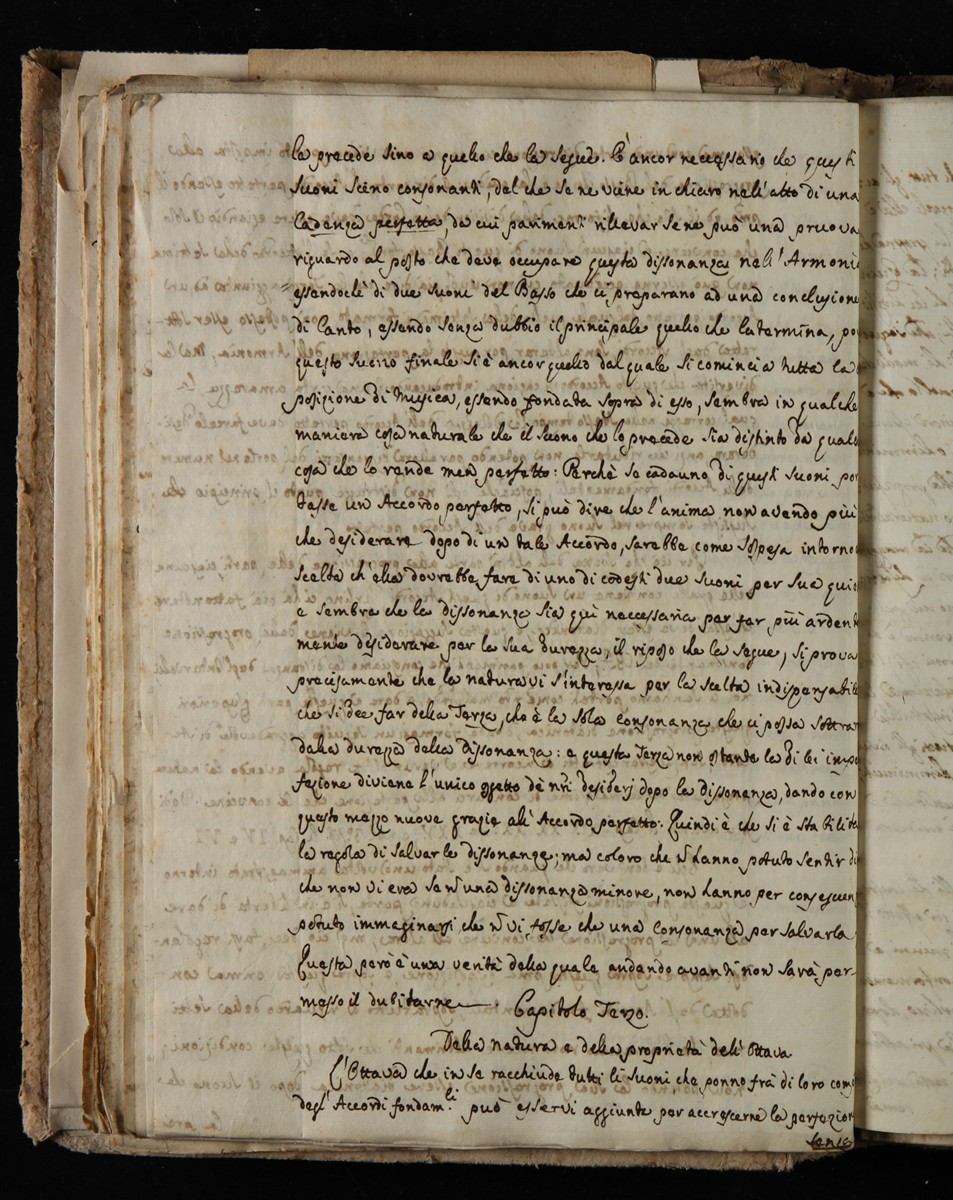 la precede sino a quello che la segue. È ancor necessario che questi
suoni sieno consonanti, del che se ne viene in chiaro nell'atto di una
Cadenza perfetta, da cui parimenti rilevar se ne può una pruova
riguardo al posto che deve occupare questa dissonanza nell'Armoni
essendochè di due suoni del Basso che ci preparano ad una conclusione
di Canto, essendo senza dubbio il principale quello che la termina, po
questo suono finale si è ancor quello dal quale si comincia tutta la
posizione di Musica, essendo fondata sopra di esso, sembra in qualche
maniera cosa naturale che il suono che lo precede sia distinto da qual
cosa che lo rende men perfetto: Perchè se cadauno di questi suoni por
tasse un Accordo perfetto, si può dire che l'anima non avendo più
che desiderare dopo di un tale Accordo, sarebbe come sospesa intorno
scelta ch'ella dovrebbe fare di uno di codesti due suoni per sua qui
e sembra che la dissonanza sia quì neccessaria per far più ardent
mente desiderare per la sua durezza, il riposo che la segue, si prova
precisamente che la natura vi s'interessa per la scelta indispensabil
che si dee far della Terza, che è la sola consonanza che ci possa sottra
dalla durezza della dissonanza: e questa Terza non ostante la di lei impe
fezione diviene l'unico oggetto dè nri desiderj dopo la dissonanza, dando con
questo mezzo nuove grazie all'Accordo perfetto. Quindi è che si è stabilita
la regola di salvar le dissonanze; ma coloro che ñ hanno potuto sentir di
che non vi era se ñ una dissonanza minore, non hanno per conseguen
potuto immaginarsi che ñ vi fosse che una Consonanza per salvarla
Questa però è una verità della quale andando avanti non sarà per
messo il dubitarne. Capitolo Terzo.
Della natura e della proprietà dell'Ottava
L'Ottava che in se racchiude tutti li suoni, che ponno frà di loro com
degl'Accordi fondam.li può esservi aggiunta per accrescerne la perfezion